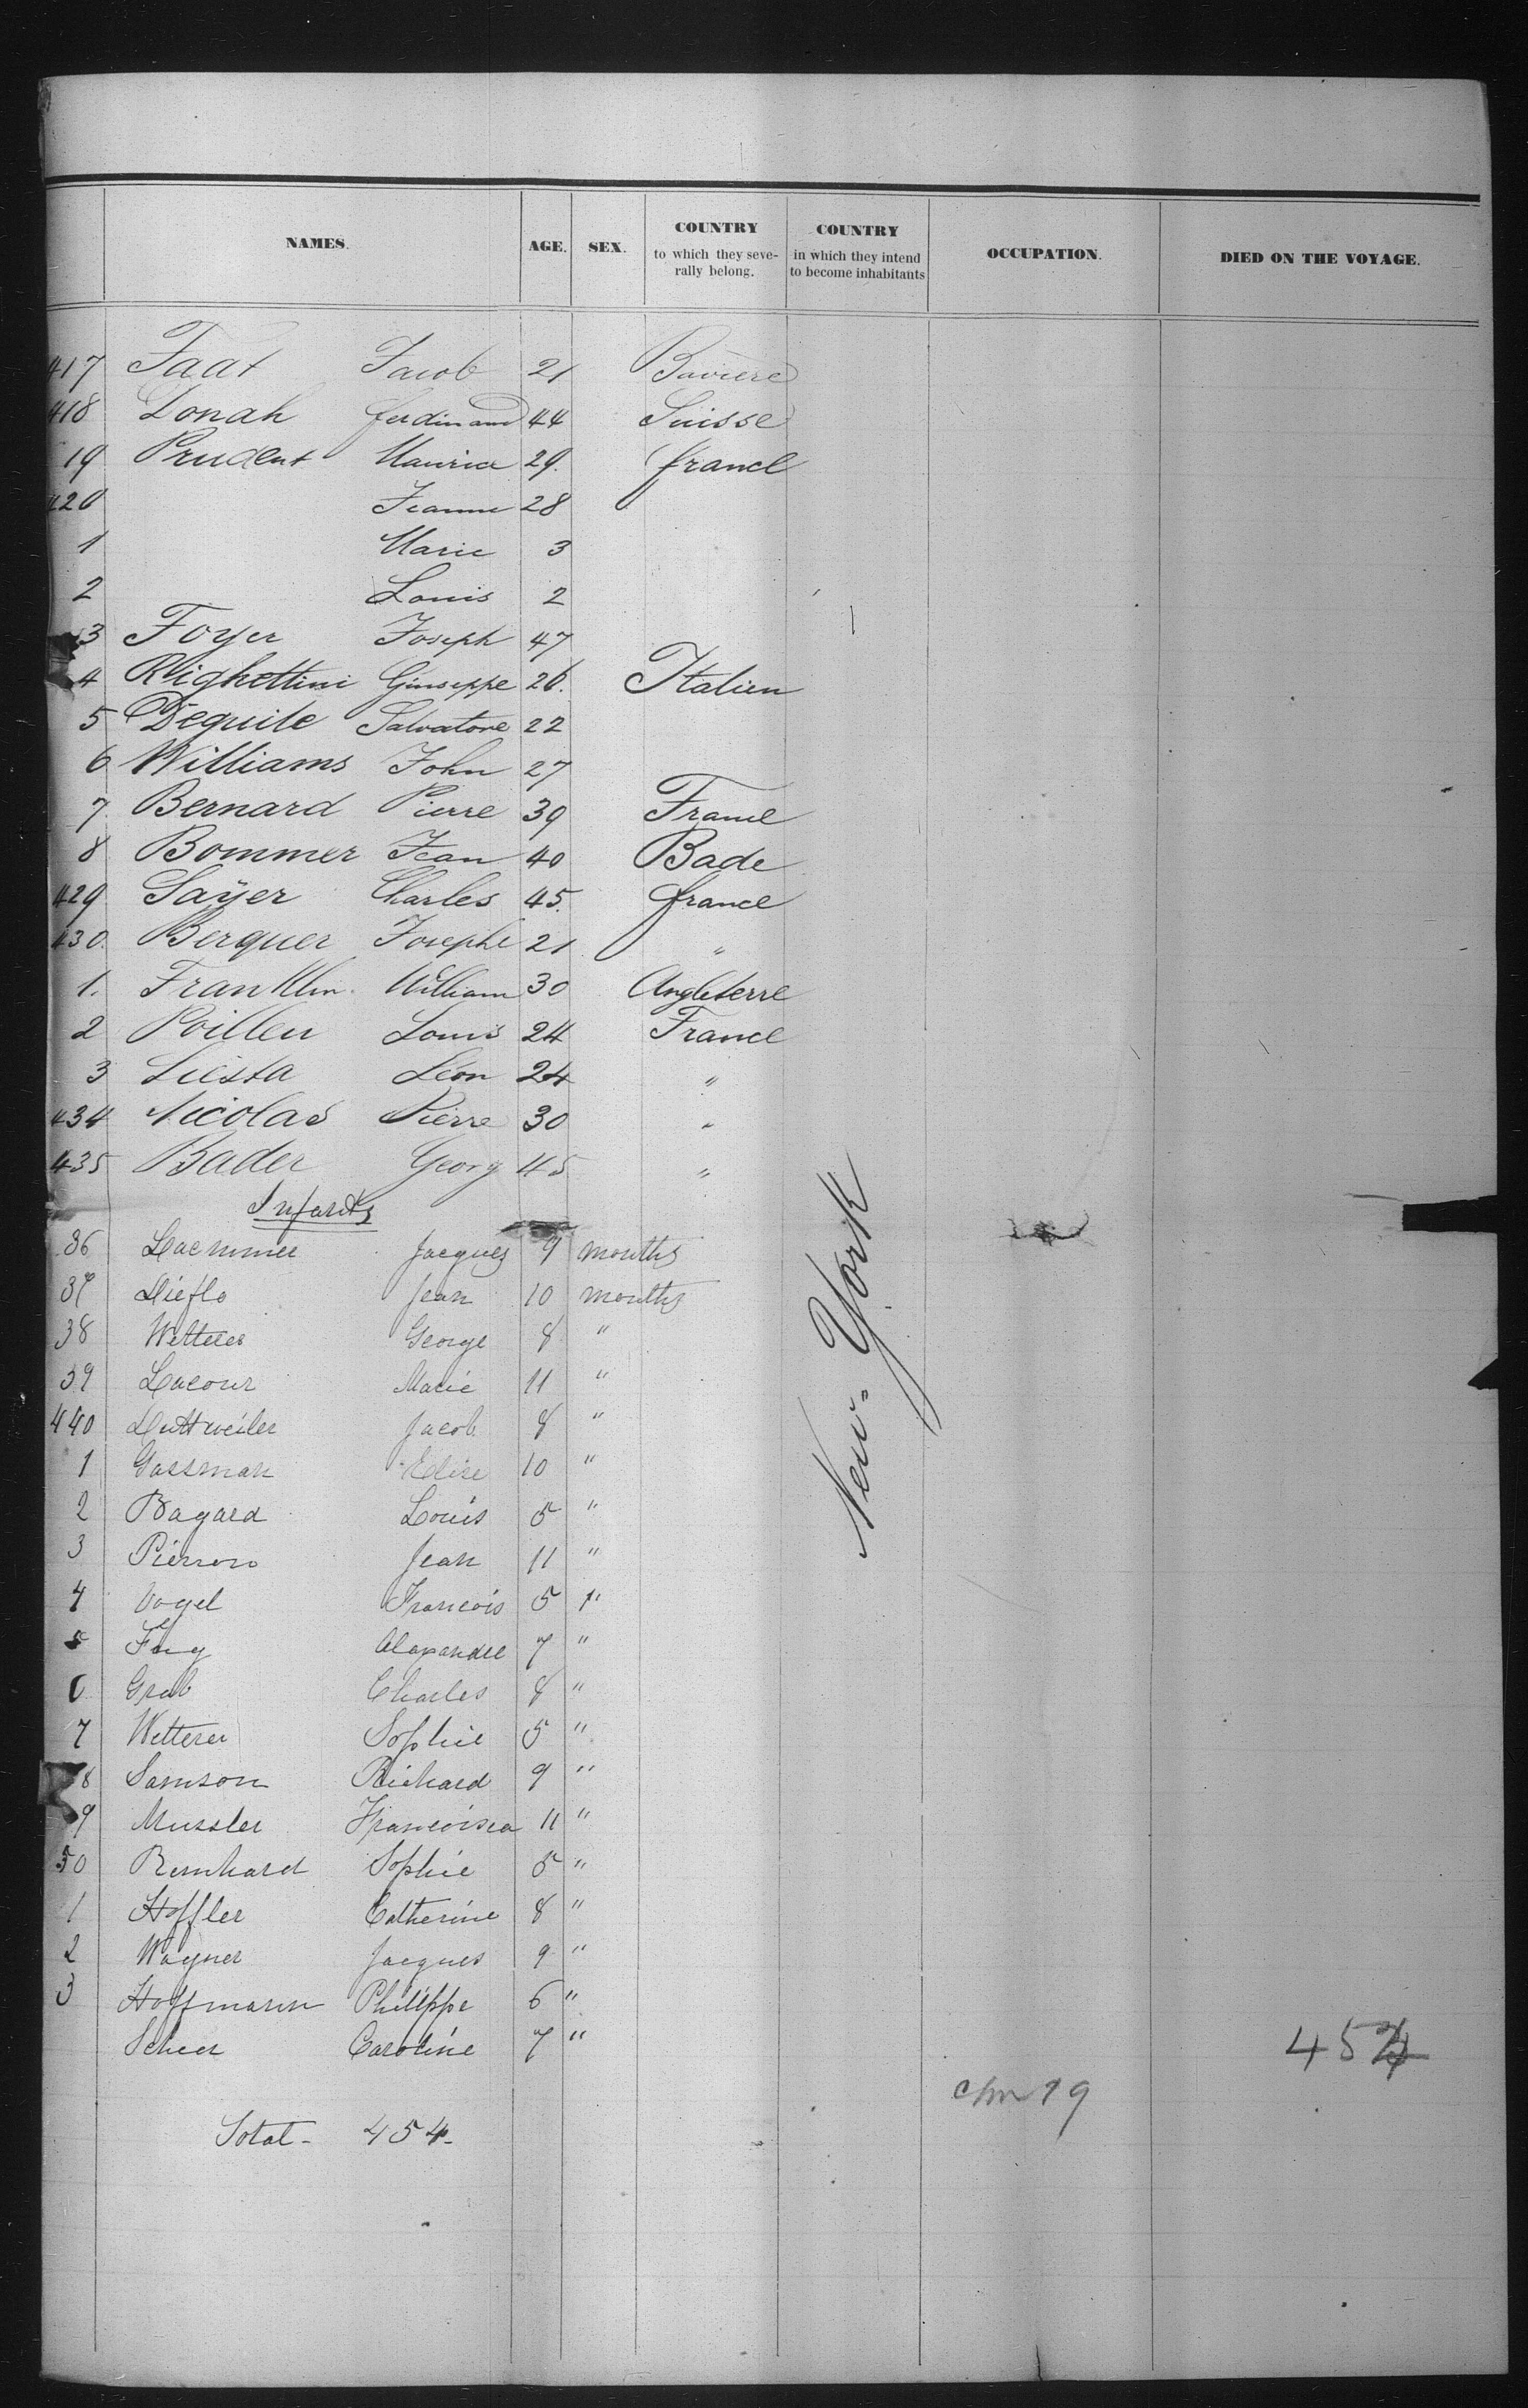 NAMES. AGE. SEX. COUNTRY to which they severally belong. COUNTRY in which they intend to become inhabitants OCCUPATION. DIED ON THE VOYAGE.
417 Faat Jacob 21 Baviere
418 Donah Ferdinand 44 Suisse
19 Prudent Maurice 29. france
420 Jeanne 28
1 Marie 3
2 Louis 2
3 Foyer Joseph 47
4 Righettini Giuseppe 26. Italien
5 Deguile Salvatore 22
6 Williams John 27
7 Bernard Pierre 39 France
8 Bommer Jean 40 Bade
429 Sayer Charles 45. france
430. Berquer Josephe 21 "
1. Franklin William 30 Angleterre
2 Poilleu Louis 24 France
3 Siesta Leon 24 "
434 Nicolas Pierre 30 "
435 Bader Georg 45 "
Infants
36 Jacques 9 months
37 Dieflo Jean 10 months
38 Wetterer George 8 "
39 Lacour Marie 11 "
440 Duttweiler Jacob 8 "
1 Gassman Elise 10 "
2 Bagard Louis 5 "
3 Pierron Jean 11 "
4 Vogel Francois 5 "
5 Alexandre 7 "
6 Grab Charles 8 "
7 Wetterer Sophie 5 "
8 Samson Richard 9 "
9 Mussler Francoisca 11 "
50 Bernhard Sophie 5 "
1 Hoffler Catherine 8 "
2 Wagner Jacques 9 "
3 Hoffmann Philippe 6 "
Scheer Caroline 7 "
New-York
454
19
Total - 454-